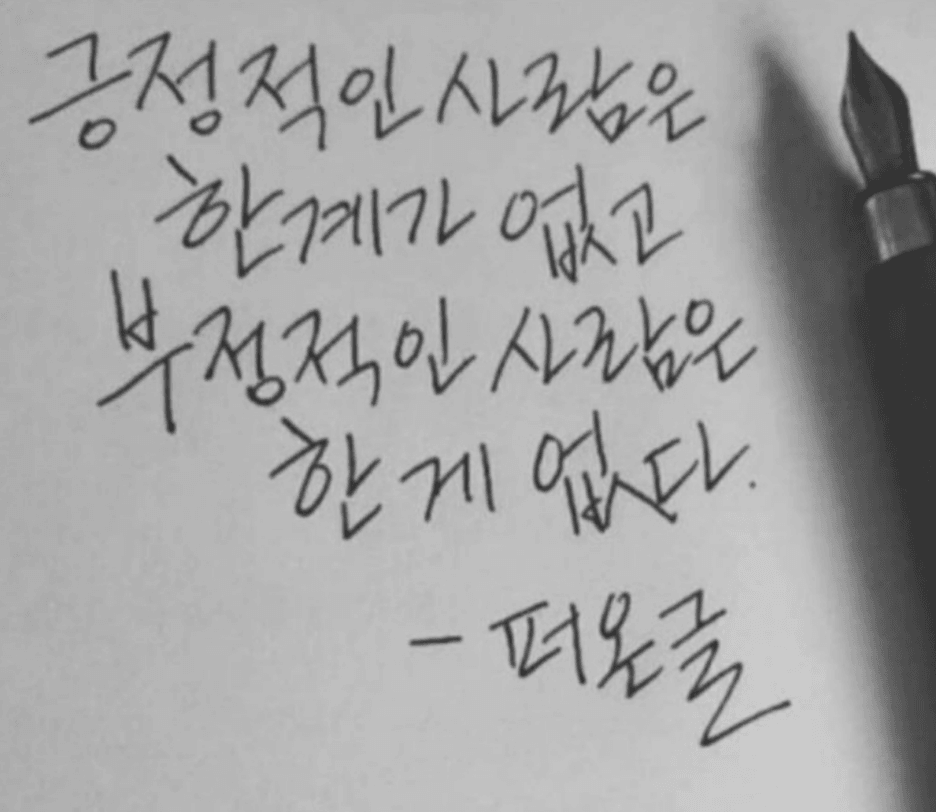 긍정적인 사람은
한계가 없고
부정적인 사람은
한게 없다.
- 퍼온글